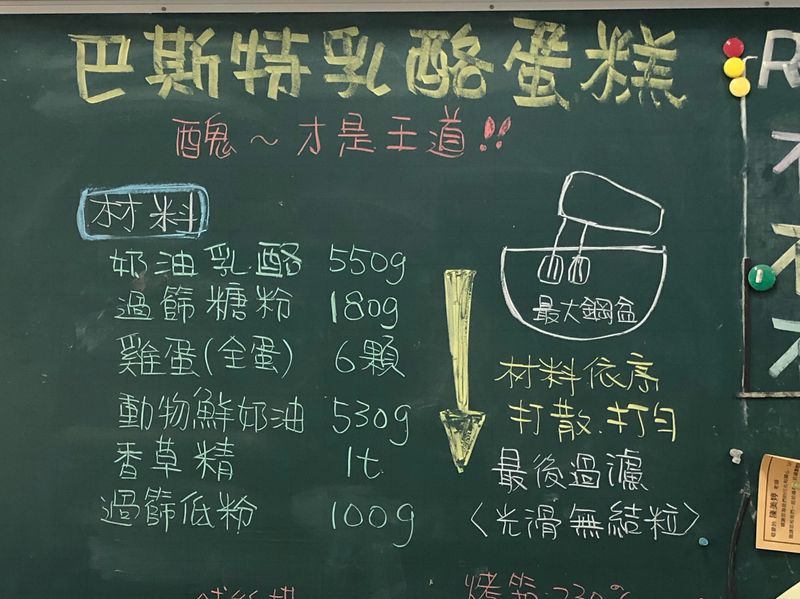 巴斯特乳酪蛋糕
醜～才是王道!!
材料
奶油乳酪 550g
過篩糖粉 180g
雞蛋(全蛋) 6顆
動物鮮奶油 530g
香草精 1t
過篩低粉 100g
最大鋼盆
材料依序
打散.打勻
最後過濾
〈光滑無結粒〉
烤箱:230°C
R
陳美婷 老師